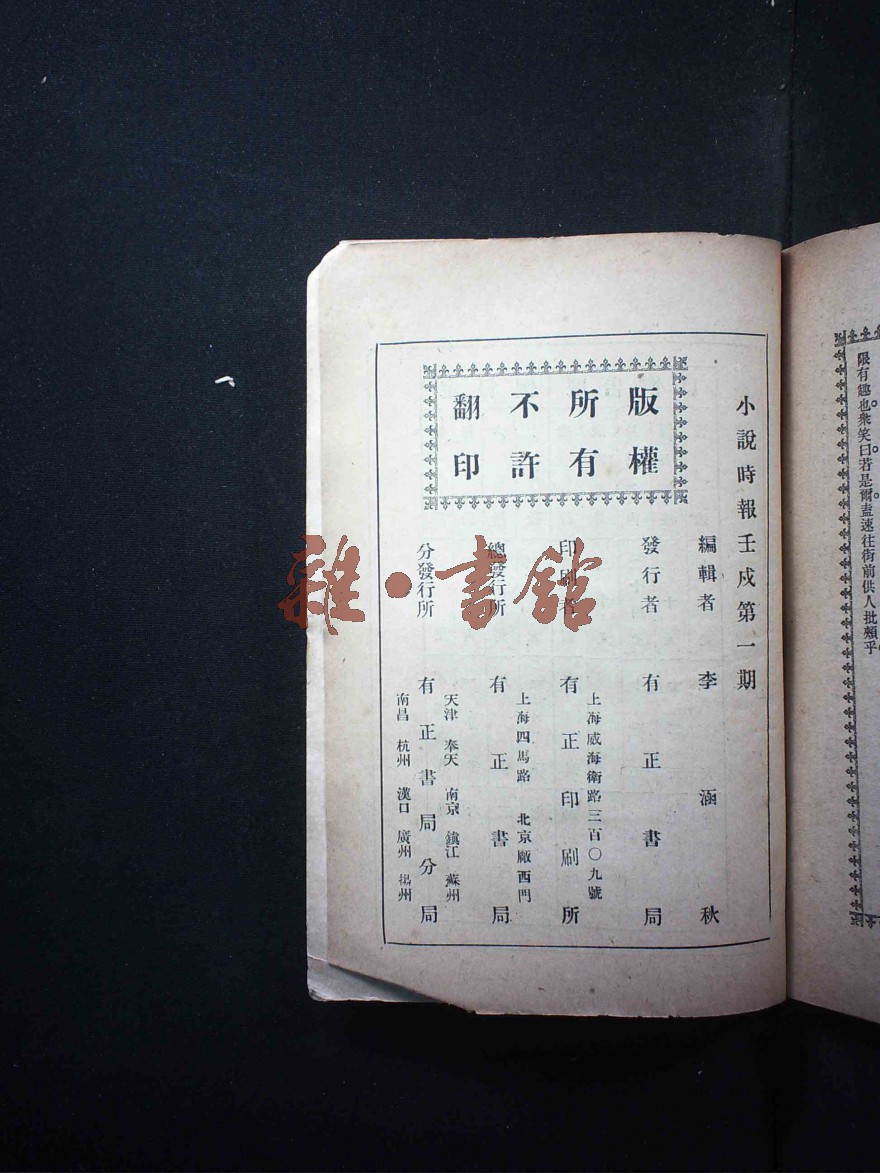 限有趣也。衆笑曰。若是。爾盍速往街前供人批頰乎。
小說時報壬戌第一期
版權
所有
不許
翻印
編輯者 李涵秋
發行者 有正書局
印刷者 上海威海衛路三百〇九號
有正印刷所
總發行所 上海四馬路 北京廠西門
有正書局
分發行所 天津 奉天 南京 鎮江 蘇州
有正書局分局
南昌 杭州 漢口 廣州 揚州
雜·書館